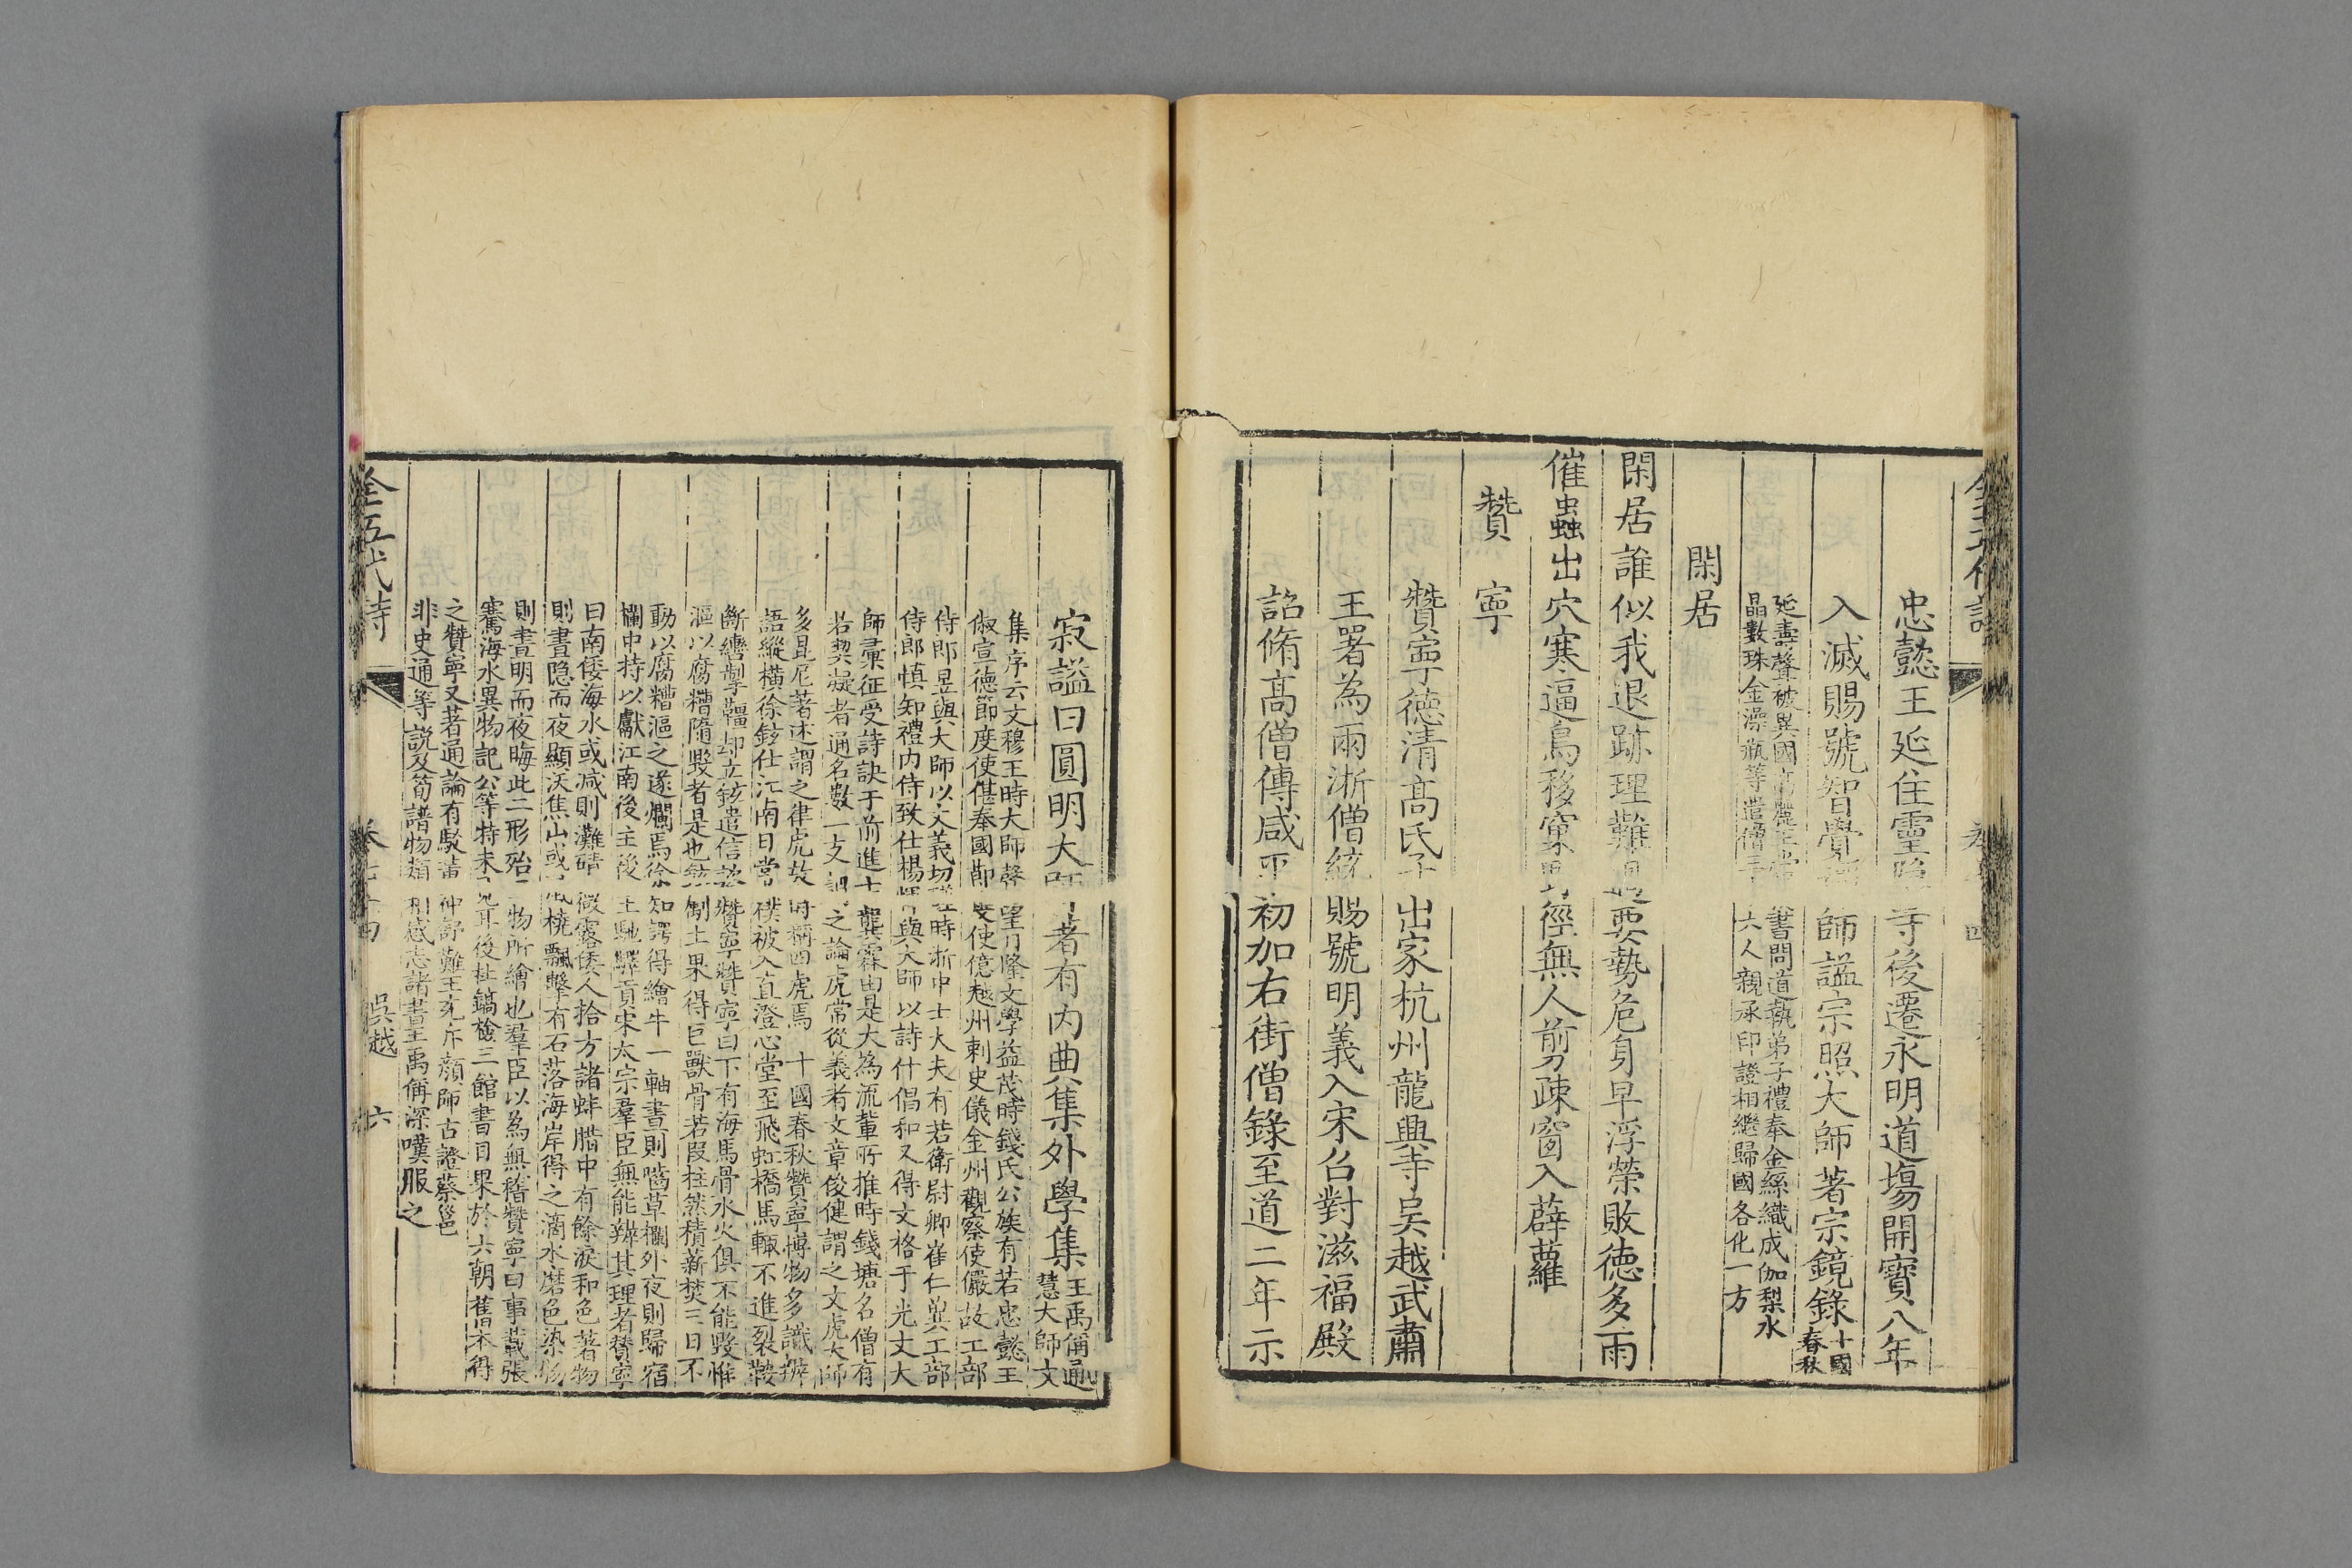 忠懿王延住靈隱寺後遷永明道塲開寶八年
入滅賜號智覺禪師謚宗照大師著宗鏡錄十國
春秋
延壽聲被異國高麗王常書問道執弟子禮奉金絲織成伽梨水
晶數珠金澡瓶等遣僧三十六人親承印證相繼歸國各化一方
閑居
閑居誰似我退跡理難過要勢危身早浮榮敗德多雨
催蟲出穴寒逼鳥移窠徑無人剪疎窗入薜蘿
贊寧
贊寧德清高氏子出家杭州龍興寺吳越武肅
王署為兩浙僧統賜號明義入宋召對滋福殿
詔脩高僧傳咸平初加右街僧錄至道二年示
寂謚曰圓明大師著有內典集外學集王禹偁通
慧大師文
集序云文穆王時大師聲望日隆文學益茂時錢氏公族有若忠懿王
俶宣德節度使偡奉國節度使億越州刺史儀金州觀察使儼故工部
侍郎昱與大師以文義切磋時浙中士大夫有若衛尉卿崔仁冀工部
侍郎慎知禮內侍致仕楊惲與大師以詩什倡和又得文格于光文大
師彙征受詩訣于前進士龔霖由是大為流輩所推時錢塘名僧有
若契凝者通名數一支謂之論虎常從義者文章俊健謂之文虎大師
多毘尼著述謂之律虎故時稱四虎焉 十國春秋贊寧博物多識辨
語縱橫徐鉉仕江南日常襆被入直澄心堂至飛虹橋馬輒不進裂鞍
斷轡掣韁却立鉉遣信詢贊寧贊寧曰下有海馬骨水火俱不能毀惟
漚以腐糟隨毀者是也鉉斸土果得巨獸骨若段柱然積薪焚三日不
動以腐糟漚之遂爛焉徐知諤得繪牛一軸晝則嚙草欄外夜則歸宿
欄中持以獻江南後主後主馳驛貢宋太宗羣臣無能辨其理者贊寧
曰南倭海水或減則灘磧微露倭人拾方諸蚌腊中有餘淚和色著物
則晝隱而夜顯沃焦山或風橈飄擊有石落海岸得之滴水磨色染物
則晝明而夜晦此二形殆二物所繪也羣臣以為無稽贊寧曰事載張
騫海水異物記公等特未見耳後杜鎬檢三館書目果於六朝舊本得
之贊寧又著通論有駁董仲舒難王充斥顏師古證蔡邕
非史通等說及筍譜物類相感志諸書王禹偁深嘆服之
全五代詩
卷七十四
吳越
六